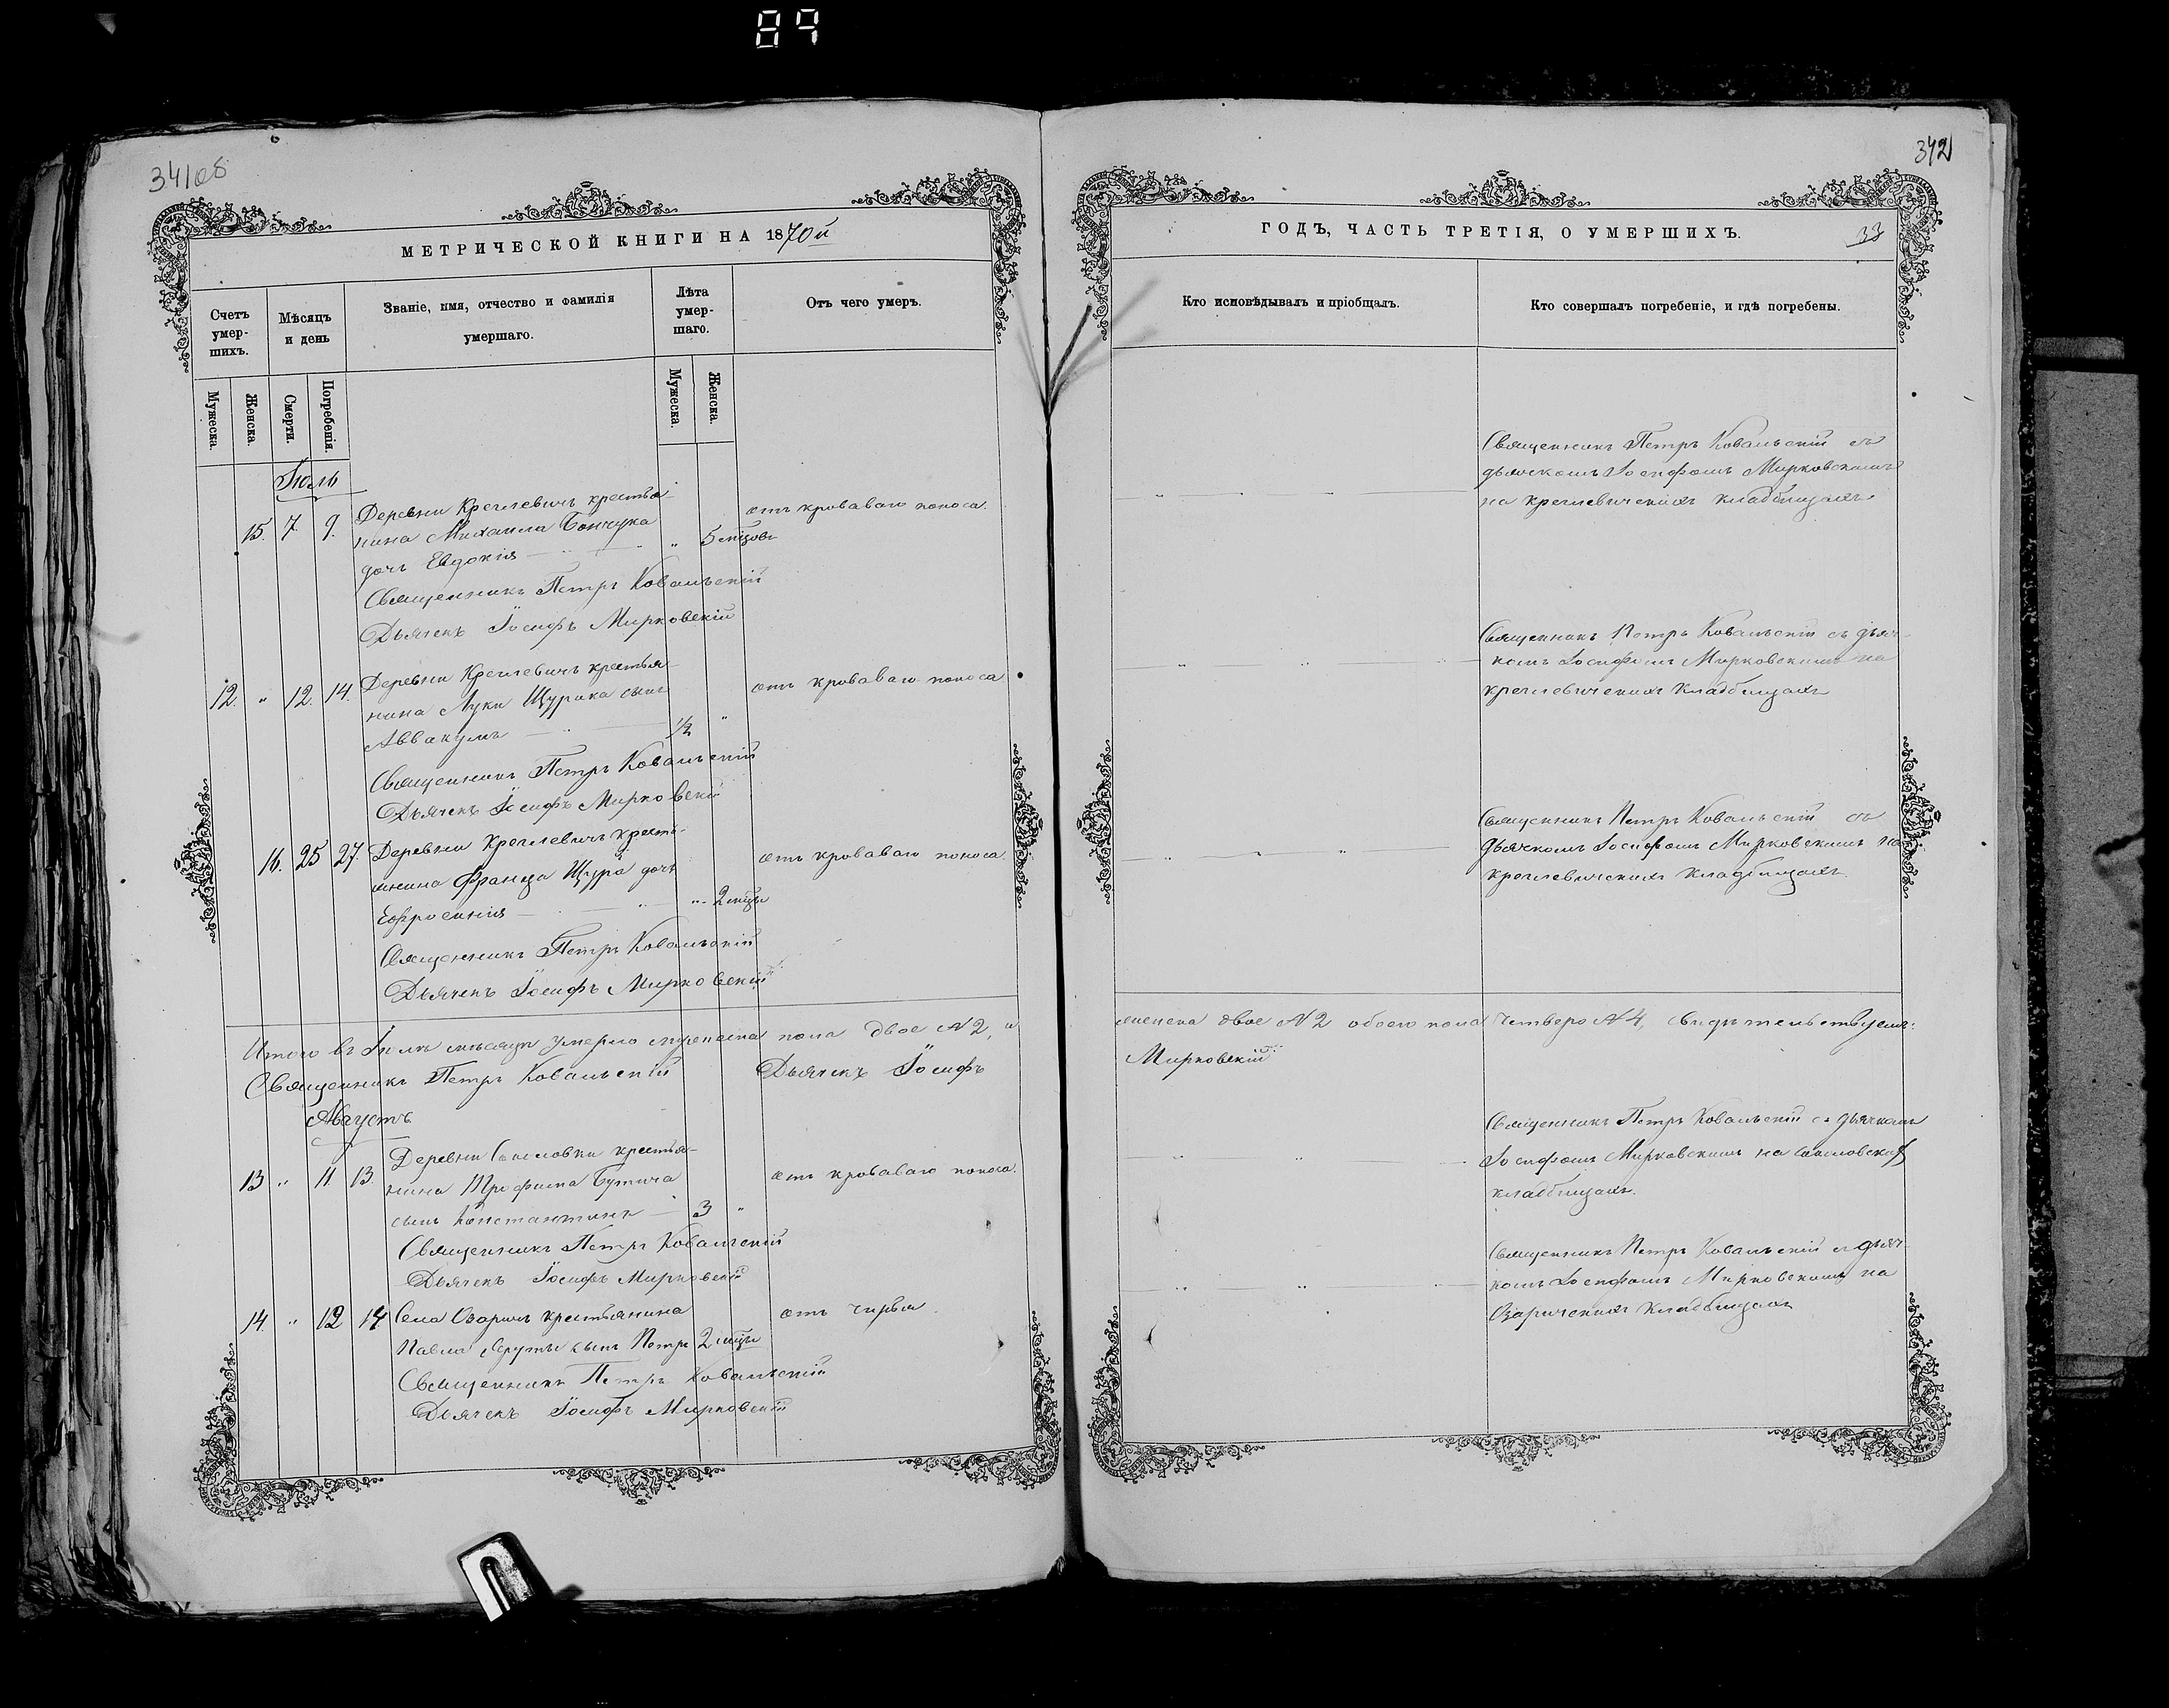 89
34108
МЕТРИЧЕСКОЙ КНИГИ НА 1870й
Счетъ умер-шихъ.
Мѣсяцъ и день
Званіе, имя, отчество и фамилія умершаго.
Лѣта умер-шаго.
Отъ чего умеръ.
Мужеска.
Женска.
Смерти.
Погребенія.
Мужеска.
Женска.
Іюль
Деревни Креглевичъ крестья-
15. 7 9. нина Михаила Бончука отъ кроваваго поноса.
дочь Евдокія — „ 5 мцовъ
Священникъ Петръ Ковальскій
Дьячекъ Іосифъ Мирковскій
Деревни Креглевичъ крестья-
12. „ 12. 14. нина Луки Щурика сынъ отъ кроваваго поноса
Аввакумъ — ½ „
Священникъ Петръ Ковальскій
Дьячекъ Іосифъ Мирковскій
Деревни Креглевичъ крестья-
16. 25 27. нина Франца Щура дочь отъ кроваваго поноса.
Ефросинія — „ 2 мцы
Священникъ Петръ Ковальскій
Дьячекъ Іосифъ Мирковскій
Итого въ Іюлѣ мѣсяцѣ умерло мужеска пола двое N 2, и
Священникъ Петръ Ковальскій Дьячекъ Іосифъ
Августъ
Деревни крестья-
13 „ 11 13 нина Трофима Бутича отъ кроваваго поноса.
сынъ Константинъ — 3 „
Священникъ Петръ Ковальскій
Дьячекъ Іосифъ Мирковскій
14. „ 12 14 Села Озаричъ крестьянина отъ чирья.
Павла сынъ Петръ 2 мцы
Священникъ Петръ Ковальскій
Дьячекъ Іосифъ Мирковскій
342
ГОДЪ, ЧАСТЬ ТРЕТІЯ, О УМЕРШИХЪ.
33
Кто исповѣдывалъ и пріобщалъ.
Кто совершалъ погребеніе, и гдѣ погребены.
Священникъ Петръ Ковальскій съ
дьячкомъ Іосифомъ Мирковскимъ
на креглевическихъ кладбищахъ
Священникъ Петръ Ковальскій съ дьяч-
комъ Іосифомъ Мирковскимъ на
креглевическихъ кладбищахъ
Священникъ Петръ Ковальскій съ
дьячкомъ Іосифомъ Мирковскимъ на
креглевическихъ кладбищахъ.
женска двое N 2 обоего пола четверо N 4, свидѣтельствуемъ:
Мирковскій
Священникъ Петръ Ковальскій съ дьячкомъ
Іосифомъ Мирковскимъ на
кладбищахъ.
Священникъ Петръ Ковальскій съ дьяч-
комъ Іосифомъ Мирковскимъ на
Озаричскихъ кладбищахъ